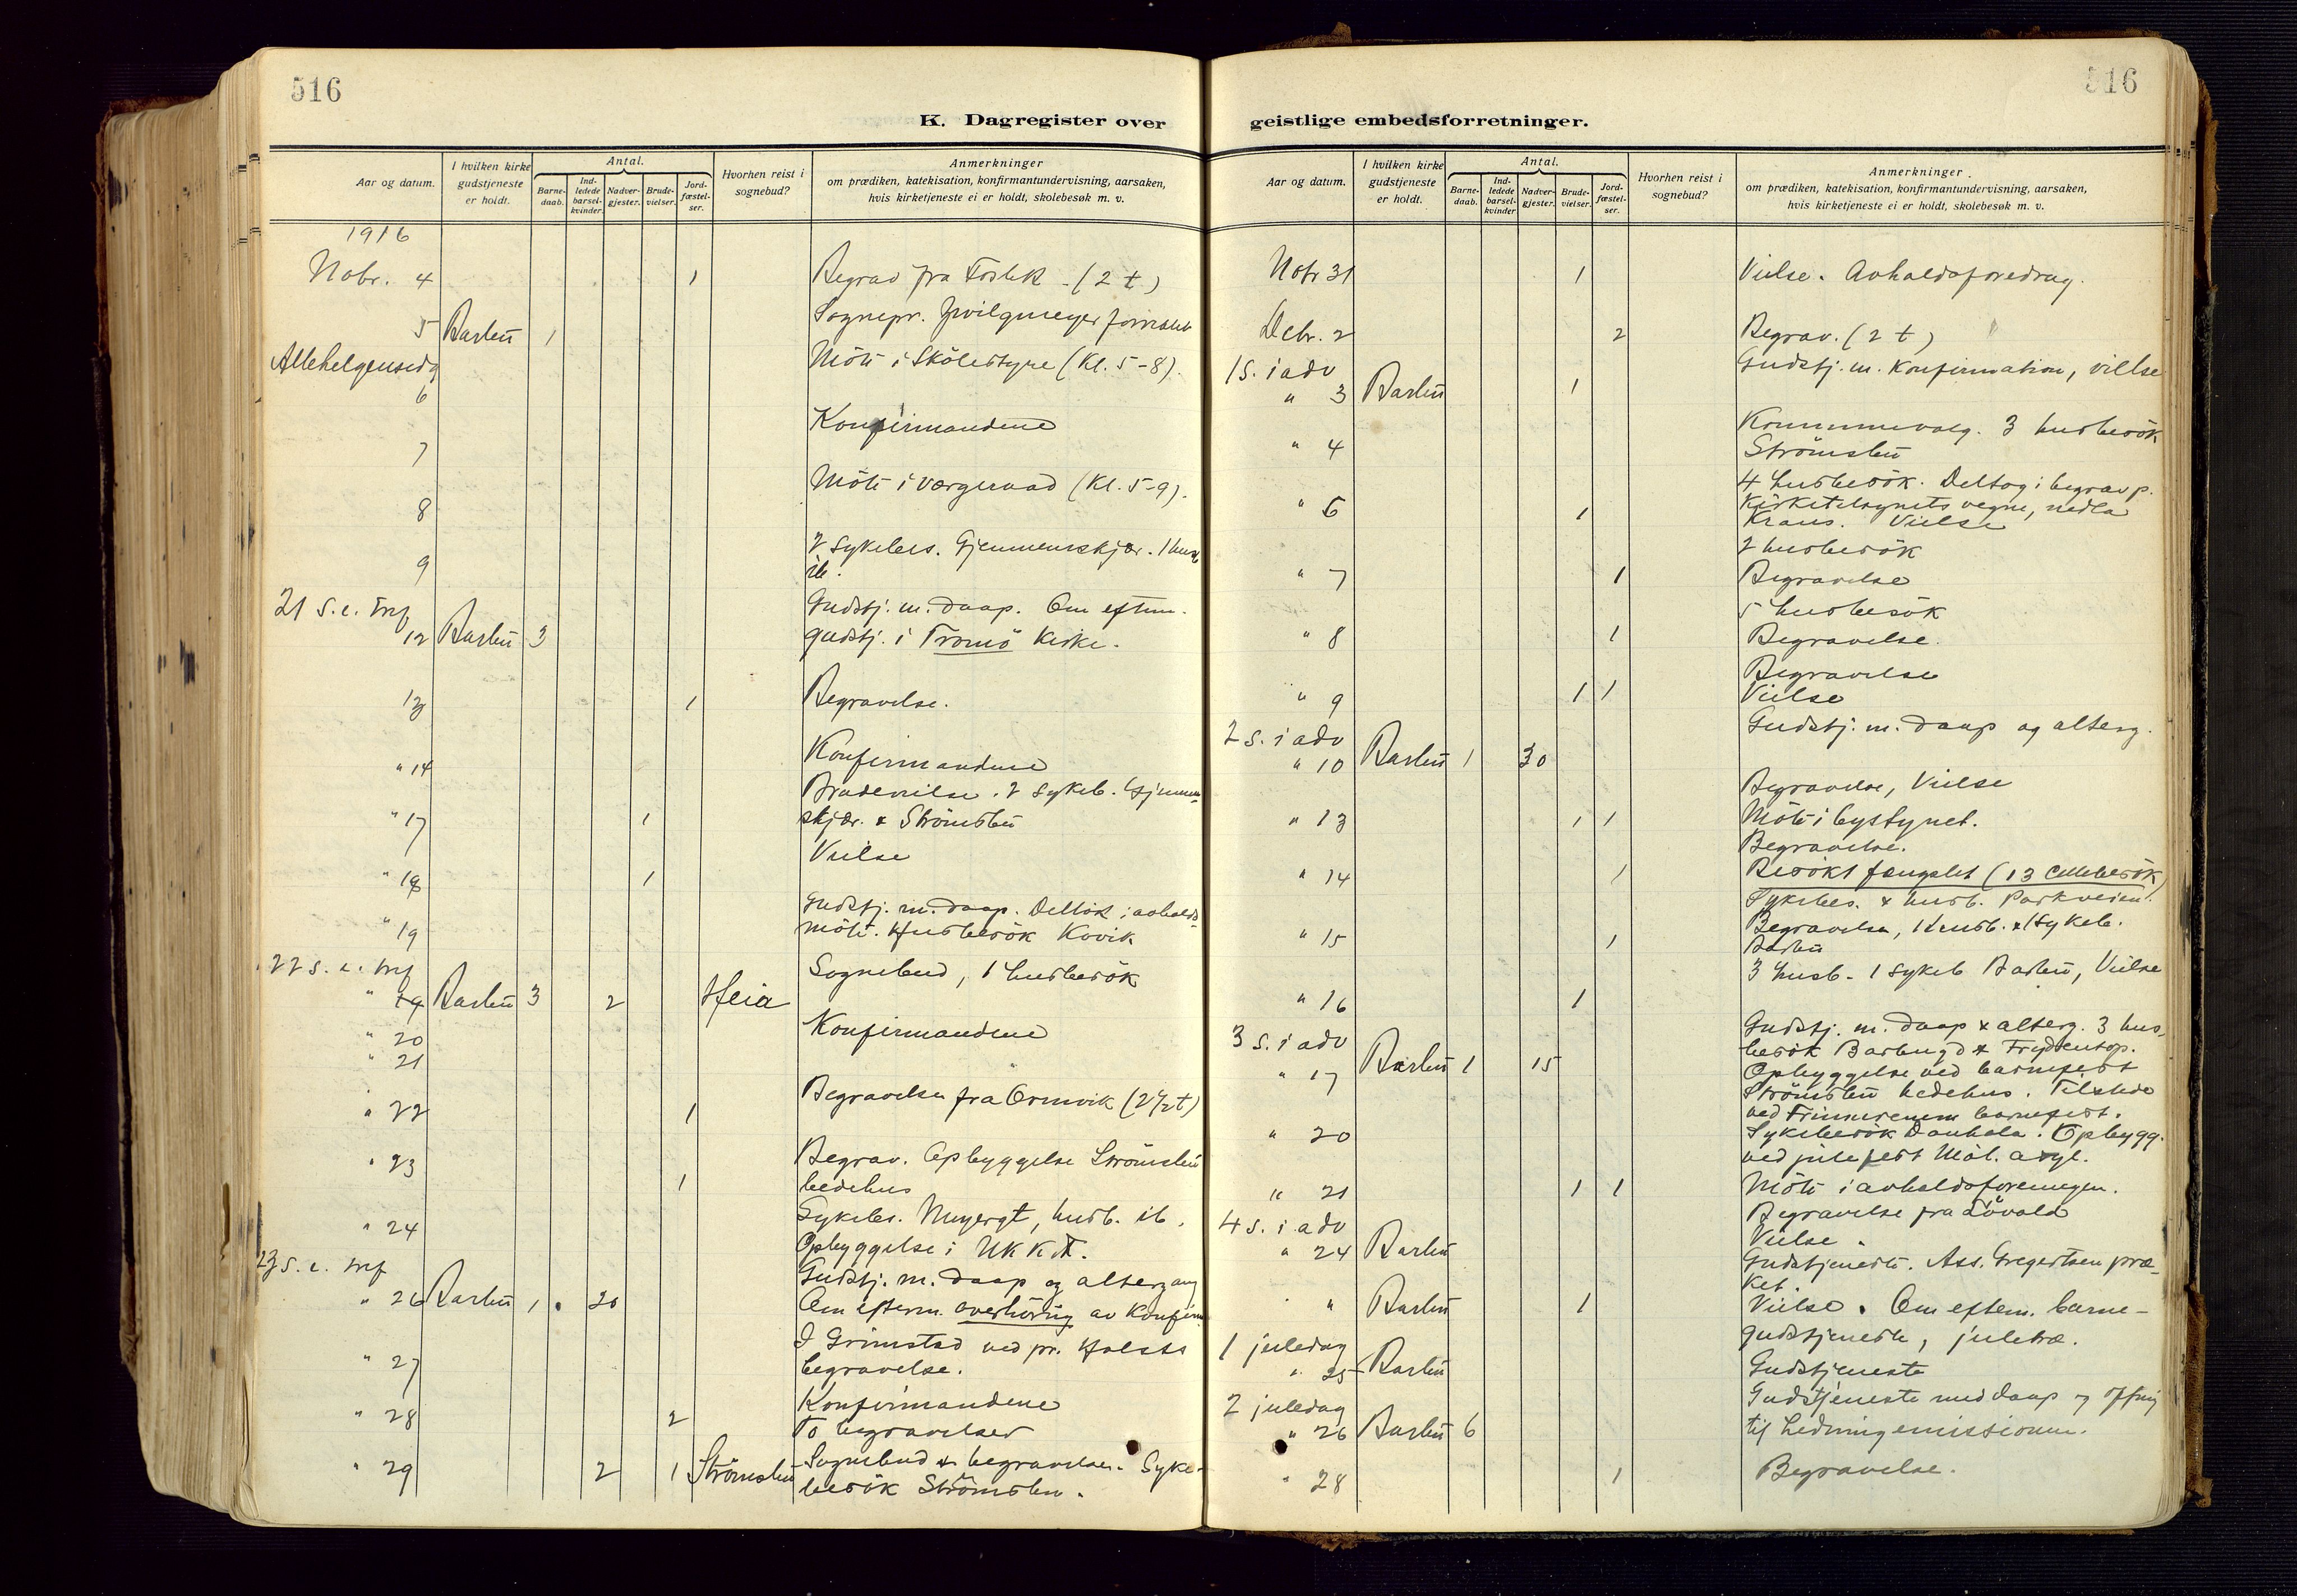 516
K. Dagregister over
Aar og datum.
I hvilken kirke gudstjeneste er holdt.
Antal.
Barne-daab.
Ind-ledede barsel-kvinder.
Nadver-gjester.
Brude-vielser.
Jord-fæstel-ser.
Hvorhen reist i sognebud?
Anmerkninger
om prædiken, katekisation, konfirmantundervisning, aarsaken,
hvis kirketjeneste ei er holdt, skolebesøk m. v.
1916
Nobr. 4 1 Begrav fra (2 t)
Sognepr.
5 Barbu 1
Allehelgensdg Möte i Skölestyre (Kl. 5-8).
6
Konfirmandene
7
Möte i værgeraad (Kl. 5-9).
8
2 Sykebes. Gjennemskjær. 1 husb
9 ib.
21 S. e. tref Gudstj. m. daap. Om efterm.
12 Barbu 3 gudstj. i Tromö Kirke.
13 1 Begravelse.
Konfirmandene
" 14
Brudevielse. 2 Sykeb. Gjennem-
" 17 1 skjær. & Strömsbu
Vielse
" 18 1
Gudstj. m. daap. Deltok i avholds-
" 19 möte. Husbesök Kovik
22 S. e. tref Sognebud, 1 husbesök
" 19 Barbu 3 2 Heia
" 20 Konfirmandene
" 21
" 22 1 Begravelse fra Ormvik (2 1/2 t)
" 23 Begrav. Opbyggelse Strömsbu
1 bedehus
Sykebes. Myergt, husb. ib.
" 24 Opbyggelse i
23 S. e. tref Gudstj. m. daap og altergang
" 26 Barbu 1 20 Om efterm. overhöring av Konfirm
I Grimstad ved pr. Holsts
" 27 begravelse.
Konfirmandene
" 28 2 To begravelser
Sognebud & begravelse. Syke-
" 29 2 1 Strömsbu besök Strömsbu.
516
geistlige embedsforretninger.
Aar og datum.
I hvilken kirke gudstjeneste er holdt.
Antal.
Barne-daab.
Ind-ledede barsel-kvinder
Nadver-gjester.
Brude-vielser.
Jord-fæstel-ser.
Hvorhen reist i sognebud?
Anmerkninger.
om prædiken, katekisation, konfirmantundervisning, aarsaken,
hvis kirketjeneste ei er holdt, skolebesøk m. v.
Nobr 31 1 Vielse. Avholdsforedrag.
Debr. 2 2 Begrav. (2 t)
1 S. i adv Gudstj. m. Konfirmation, vielse
" 3 Barbu 1
Kommunevalg. 3 husbesök
" 4 Strömsbu
4 husbesök. Deltog i begrav p.
" 6 1 Kirketilsynets vegne, nedla
Krans. Vielse
2 husbesök
" 7 1 Begravelse
5 husbesök
" 8 1 Begravelse.
Begravelse
" 9 1 1 Vielse
2 S. i adv Gudstj. m. daap og alterg.
" 10 Barbu 1 30
Begravelse, Vielse
" 13 1 1 Möte i bystyret.
Begravelse.
" 14 1 Besökt fængslet (13 cellebesök)
Sykebes. & husb. Parkveien.
" 15 1 Begravelse, 1 husb. & 1 Sykeb.
Barbu
3 husb. 1 Sykeb Barbu, Vielse
" 16 1
3 S. i adv Gudstj. m. daap & alterg. 3 hus-
besök Barbugd &
" 17 Barbu 1 15 Opbyggelse ved barnefest
Strömsbu bedehus. Tilstede
ved barnefest.
" 20 Sykebesök. Opbygg.
ved julefest
" 21 1 1 Möte i avholdsforeningen.
Begravelse fra Lövold
4 S. i adv Vielse.
" 24 Barbu Gudstjeneste. Ass. Gregertsen præ-
ket.
" Barbu 1 Vielse. Om efterm. barne-
gudstjeneste, juletræ.
1 juledag
" 25 Barbu Gudstjeneste
2 juledag Gudstjeneste med daap og
" 26 Barbu 6 til hedningemissionen.
" 28 1 Begravelse.